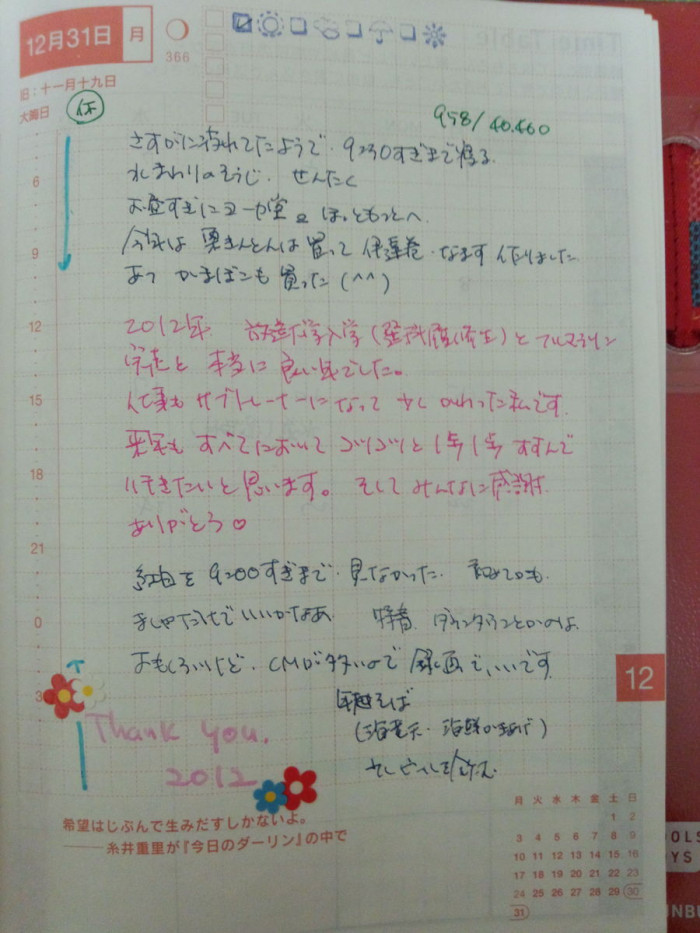 12月31日 月
366
旧:十一月十九日
大晦日 休
958/40.460
さすがに疲れてたようで、9:30すぎまで寝る。
水まわりのそうじ、せんたく
お昼すぎにヨーカ堂とほっともっとへ
今年は栗きんとんは買って伊達巻、なます作りました
あっ かまぼこも買った(^^)
2012年 放送大学入学(選科履修生)とフルマラソン
完走と本当に良い年でした。
仕事もサブトレーナーになって少しかわった私です。
来年も すべてにおいて コツコツと1歩1歩 すすんで
行きたいと思います。そしてみんなに感謝
ありがとう♡
紅白を9:00すぎまで、見なかった、
ましゃだけでいいかなあ
おもしろいけど、CMが多いので 録画で、いいです
年越そば
(海老天・海鮮かきあげ)
6
9
12
15
18
21
0
3
12
Thank You.
2012
希望はじぶんで生みだすしかないよ。
——糸井重里が『今日のダーリン』の中で
月 火 水 木 金 土 日
1 2
3 4 5 6 7 8 9
10 11 12 13 14 15 16
17 18 19 20 21 22 23
24 25 26 27 28 29 30
31